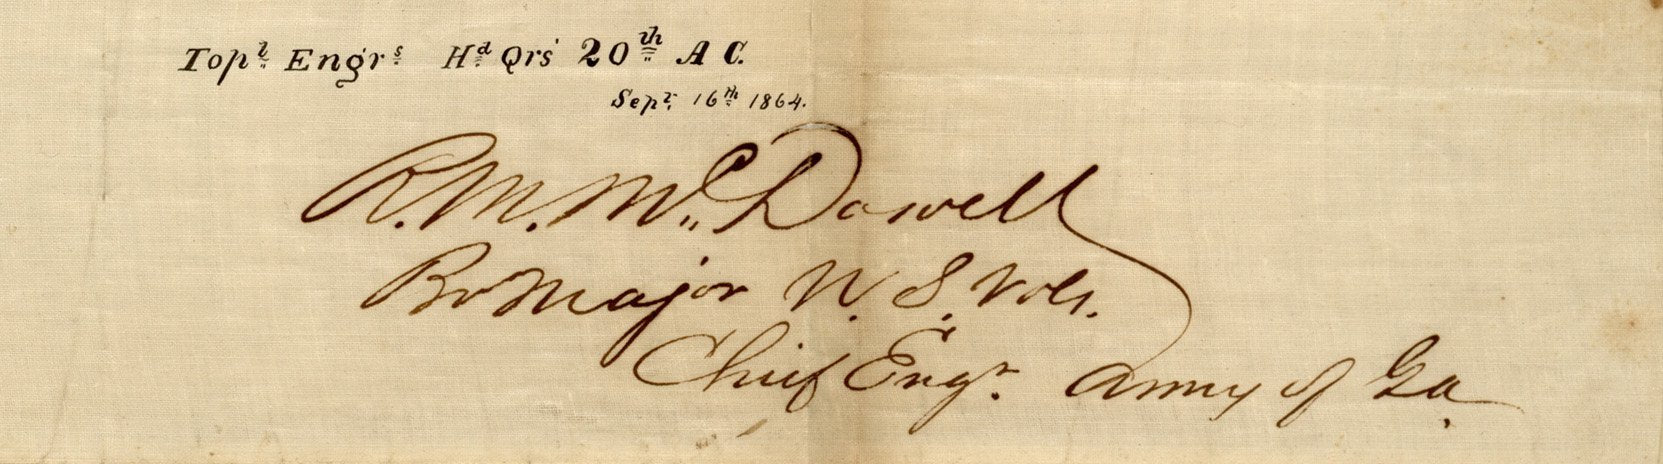 Topl Engrs Hd Qrs 20th A C.
Sept. 16th 1864.
R. M. Mc Dowell
Bv Major U. S. Vols.
Chief Engr. Army of Ga.